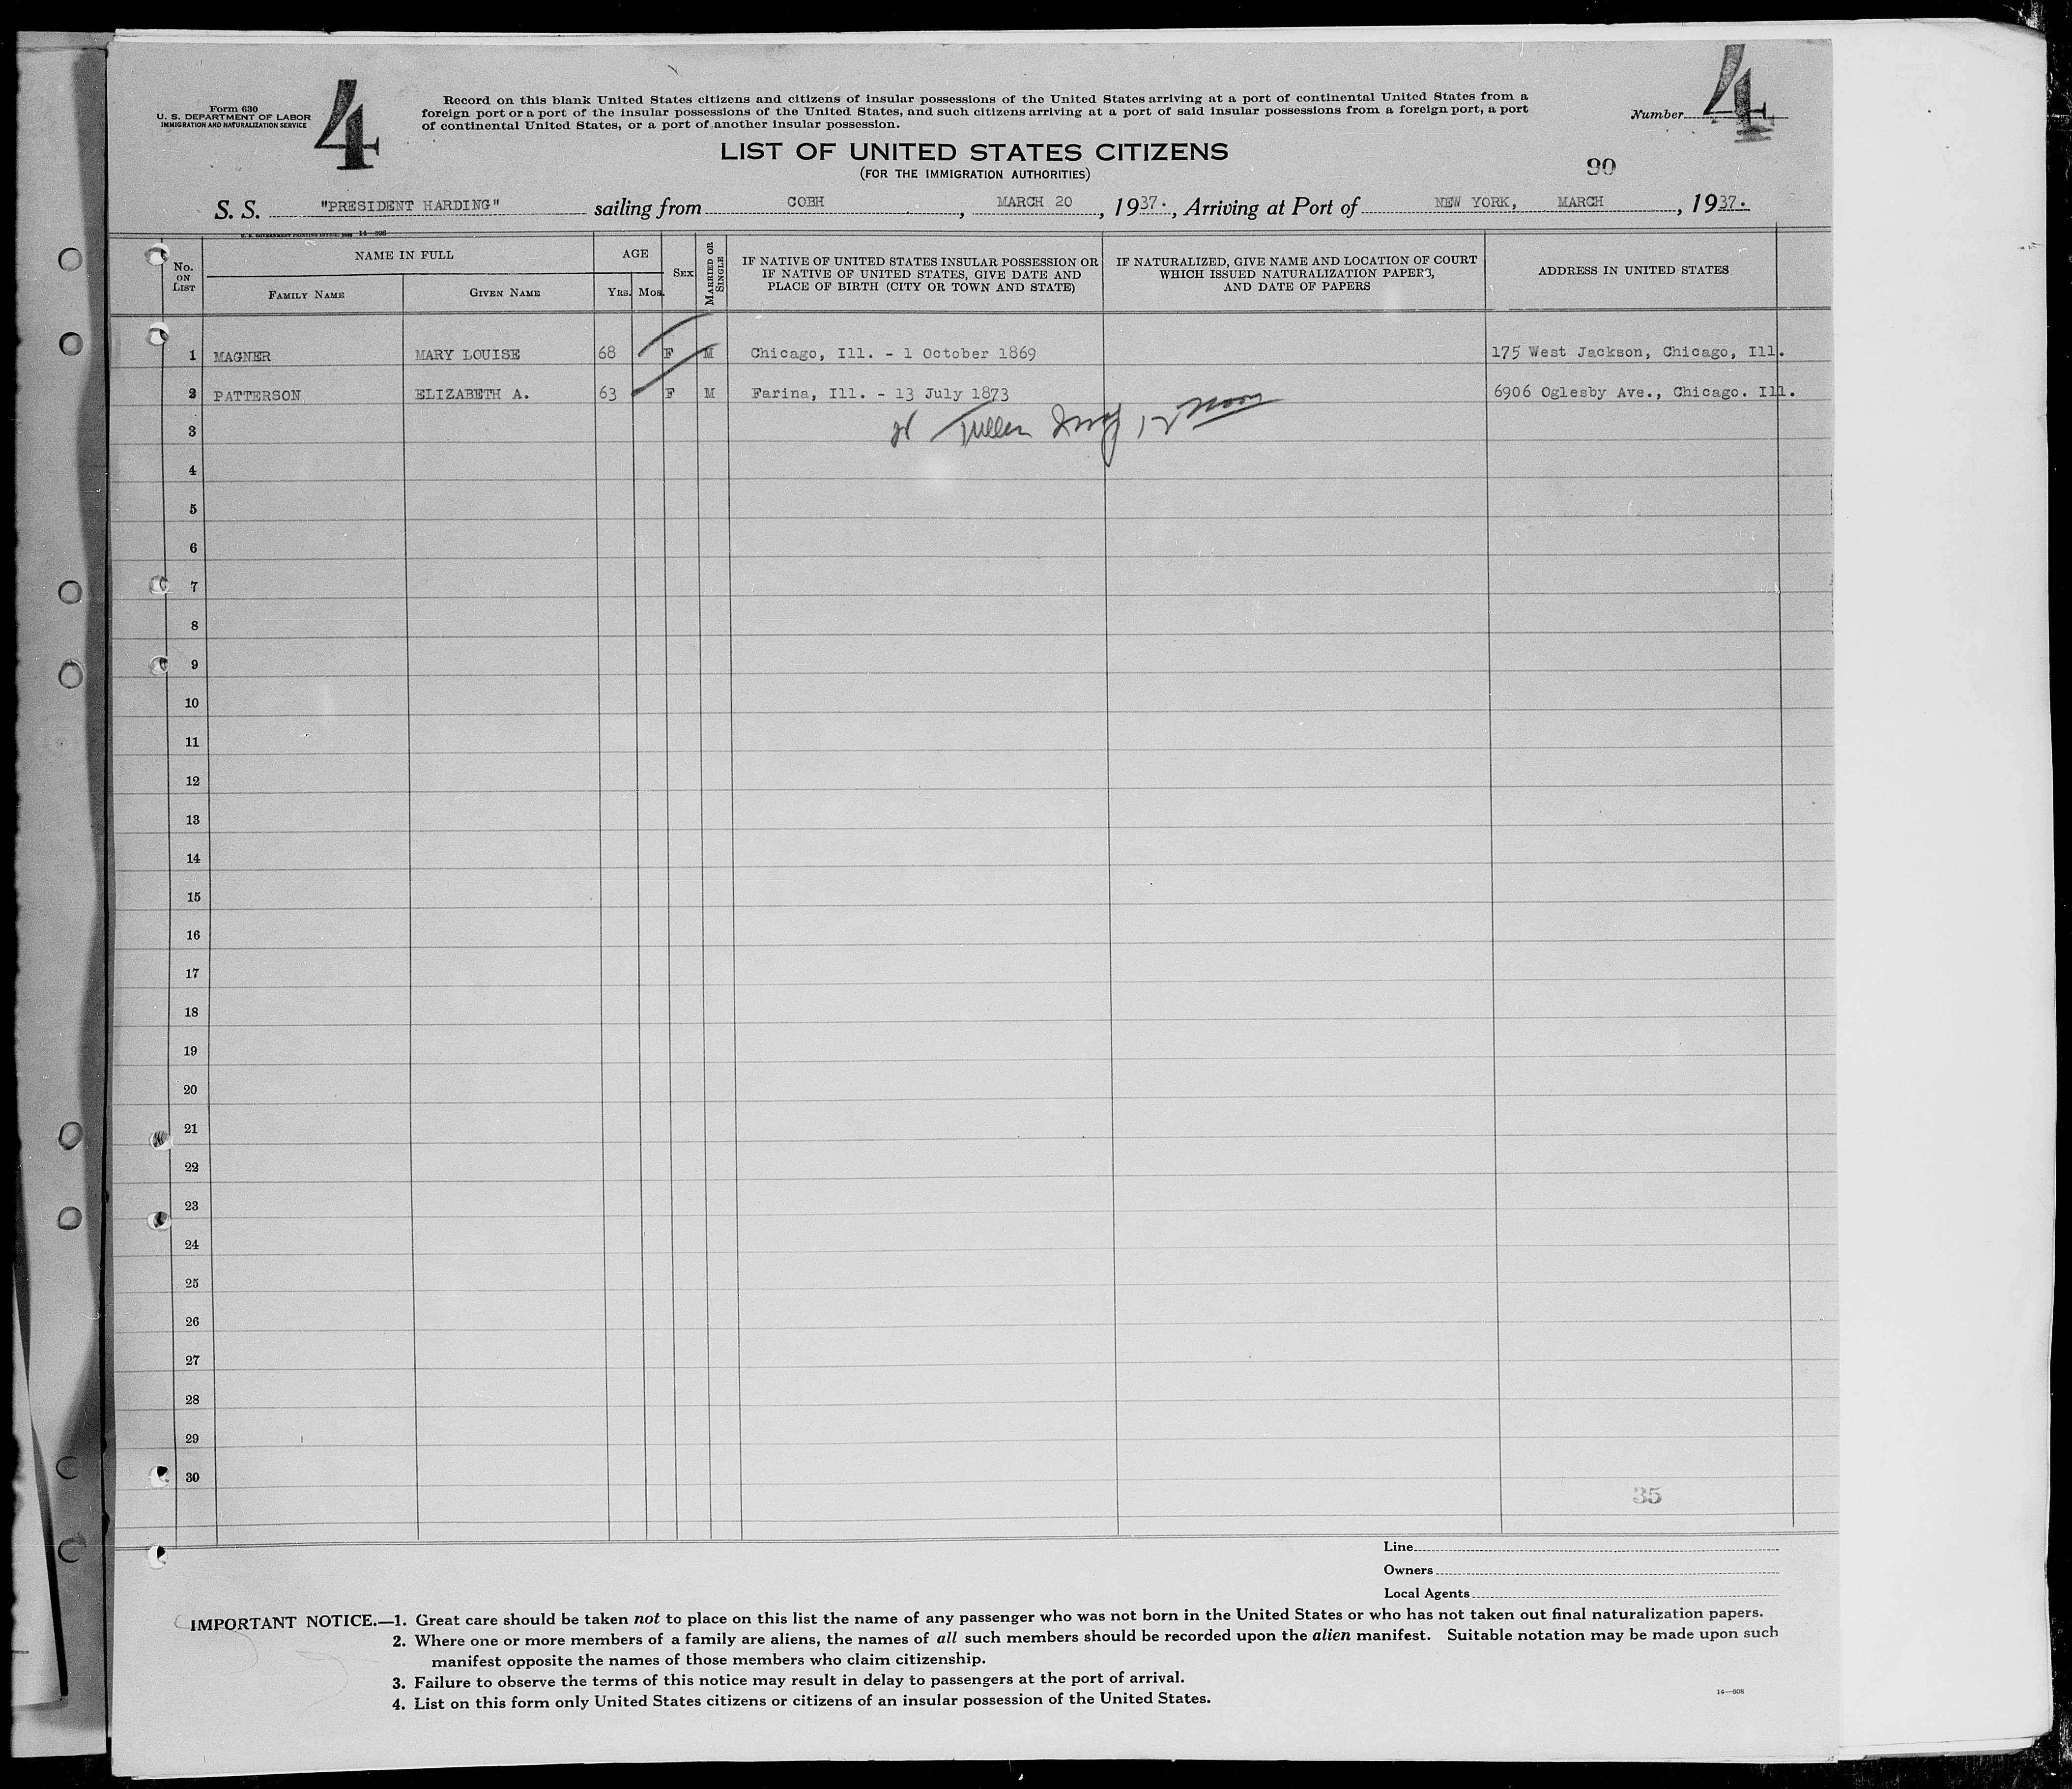 Form 630
U. S. DEPARTMENT OF LABOR
IMMIGRATION AND NATURALIZATION SERVICE
4
Record on this blank United States citizens and citizens of insular possessions of the United States arriving at a port of continental United States from a
foreign port or a port of the insular possessions of the United States, and such citizens arriving at a port of said insular possessions from a foreign port, a port
of continental United States, or a port of another insular possession.
Number 4
LIST OF UNITED STATES CITIZENS
(FOR THE IMMIGRATION AUTHORITIES)
90
S. S. "PRESIDENT HARDING" sailing from COBH, MARCH 20, 1937., Arriving at Port of NEW YORK, MARCH, 1937.
No. ON LIST
NAME IN FULL
FAMILY NAME GIVEN NAME
AGE
YRS. MOS.
SEX
MARRIED OR SINGLE
IF NATIVE OF UNITED STATES INSULAR POSSESSION OR
IF NATIVE OF UNITED STATES, GIVE DATE AND
PLACE OF BIRTH (CITY OR TOWN AND STATE)
IF NATURALIZED, GIVE NAME AND LOCATION OF COURT
WHICH ISSUED NATURALIZATION PAPERS,
AND DATE OF PAPERS
ADDRESS IN UNITED STATES
1 MAGNER MARY LOUISE 68 F M Chicago, Ill. - 1 October 1869 175 West Jackson, Chicago, Ill.
2 PATTERSON ELIZABETH A. 63 F M Farina, Ill. - 13 July 1873 6906 Oglesby Ave., Chicago. Ill.
3
4
5
6
7
8
9
10
11
12
13
14
15
16
17
18
19
20
21
22
23
24
25
26
27
28
29
30
35
Line
Owners
Local Agents
IMPORTANT NOTICE.—1. Great care should be taken not to place on this list the name of any passenger who was not born in the United States or who has not taken out final naturalization papers.
2. Where one or more members of a family are aliens, the names of all such members should be recorded upon the alien manifest. Suitable notation may be made upon such
manifest opposite the names of those members who claim citizenship.
3. Failure to observe the terms of this notice may result in delay to passengers at the port of arrival.
4. List on this form only United States citizens or citizens of an insular possession of the United States.
14—608